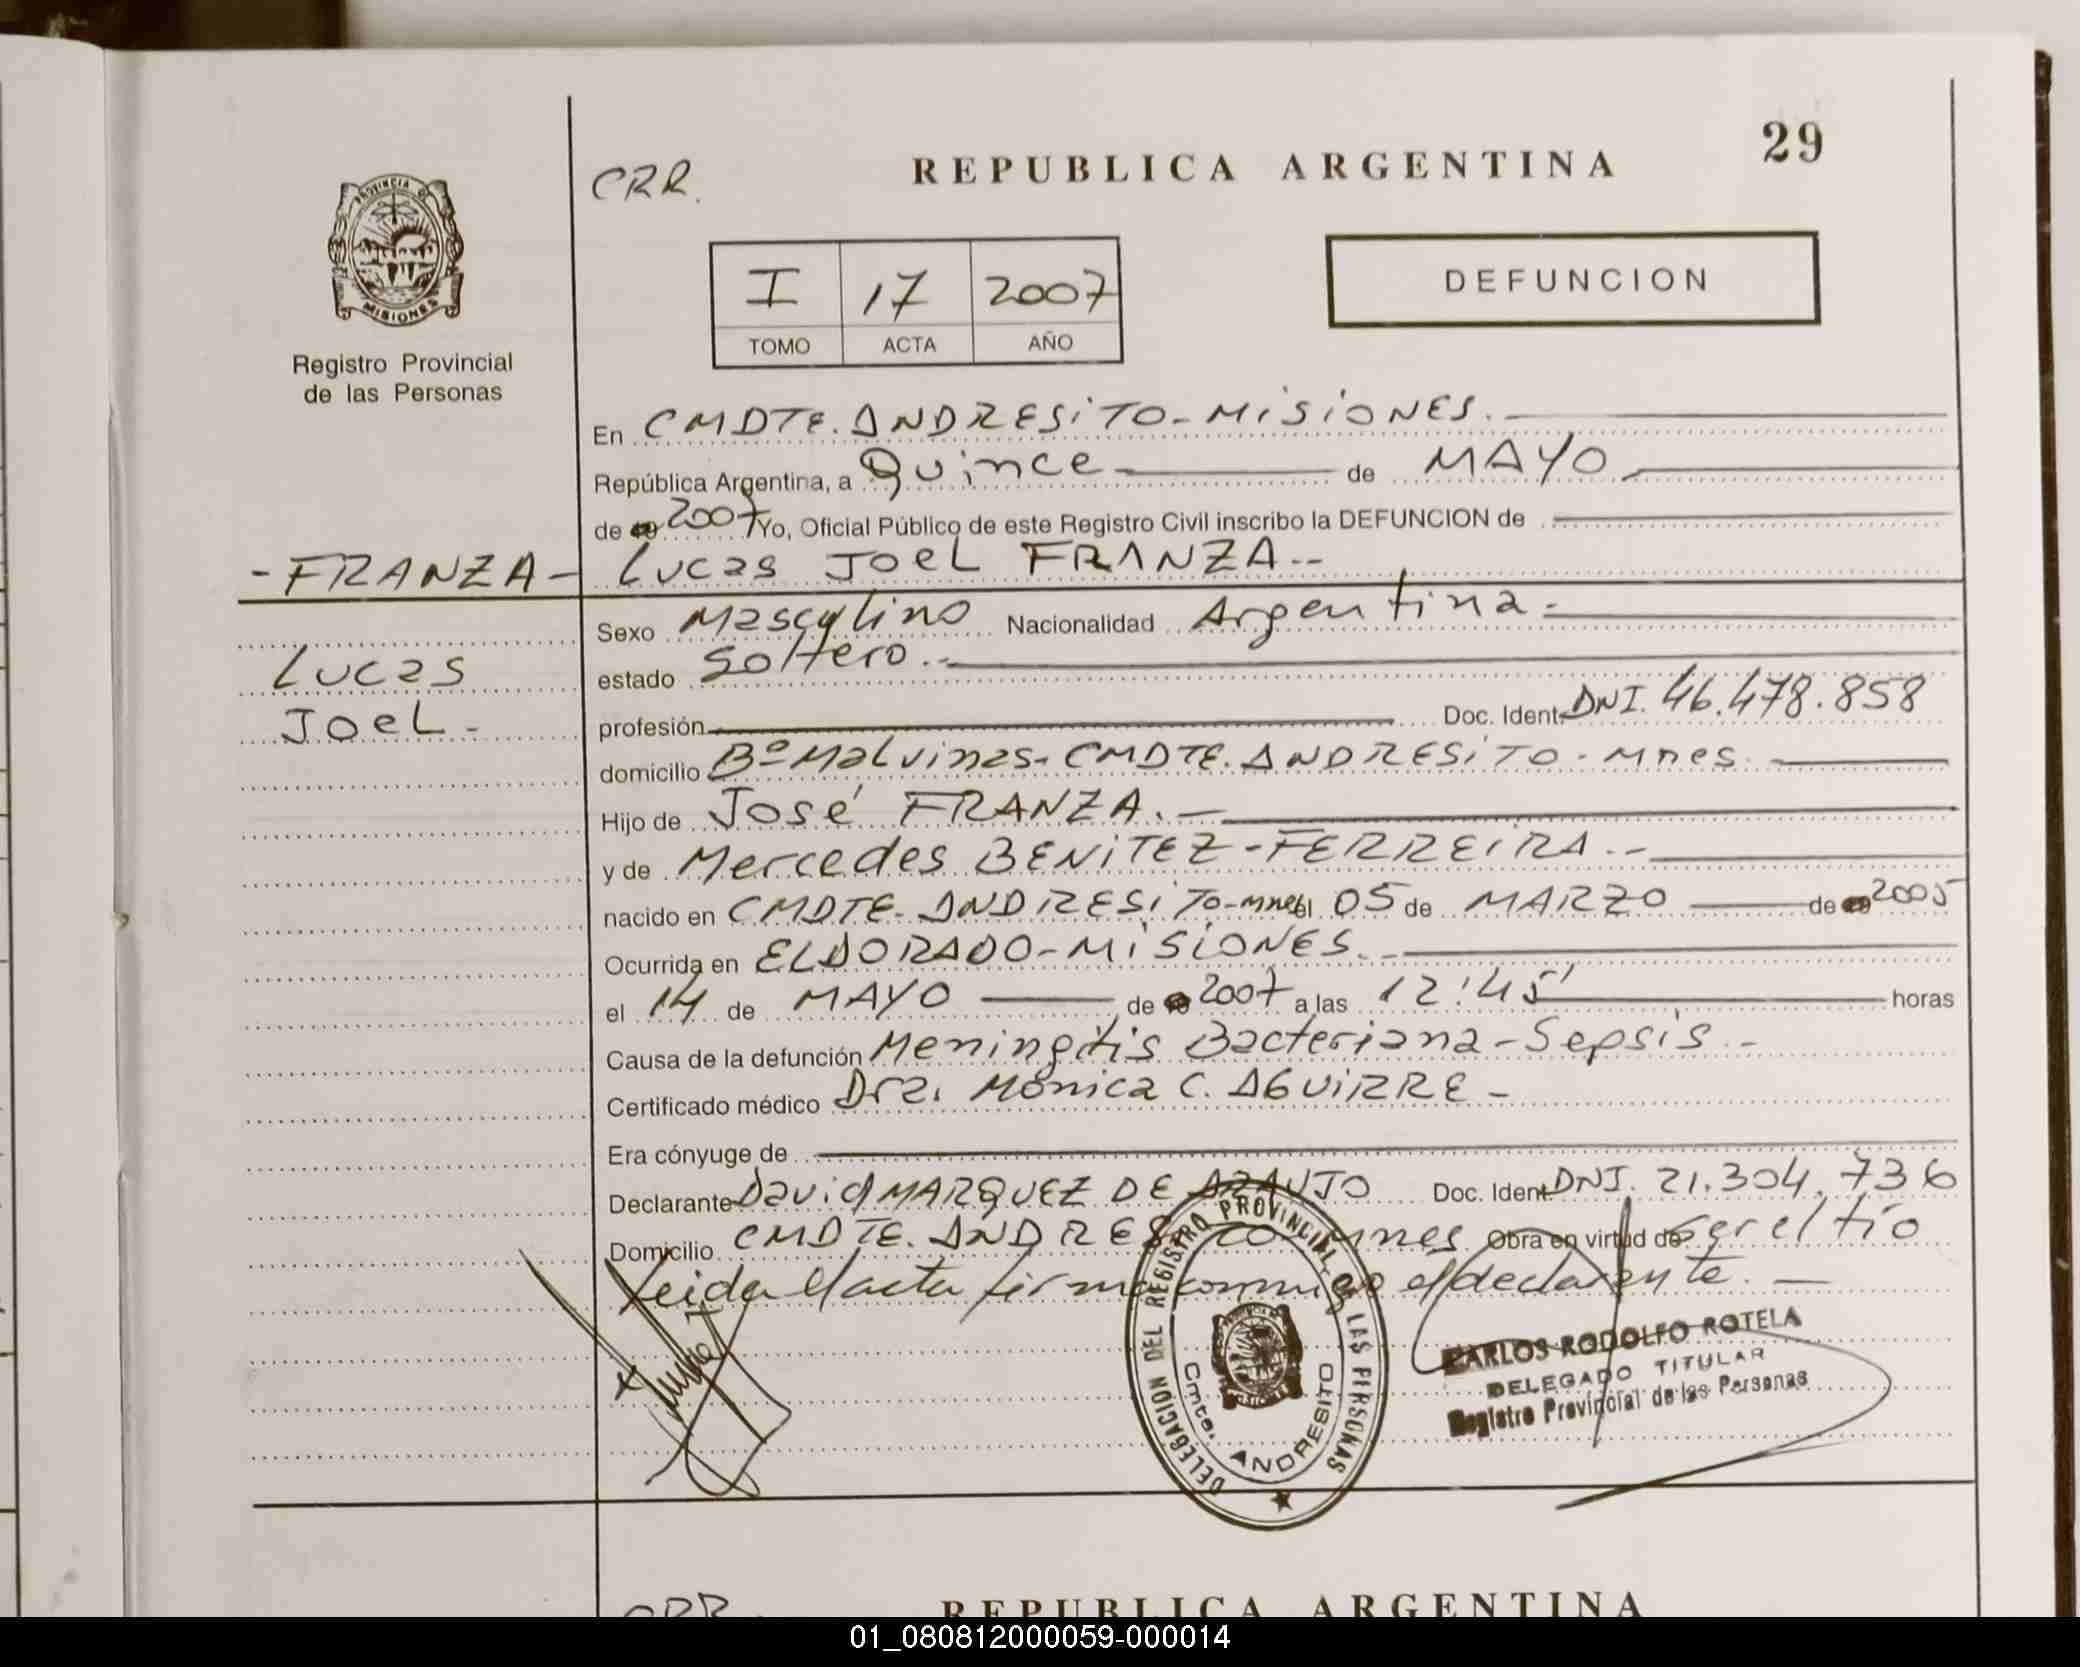 29
CRR.
REPUBLICA ARGENTINA
PROVINCIA DE
MISIONES
Registro Provincial
de las Personas
I 17 2007
TOMO ACTA AÑO
DEFUNCION
En CMDTE. ANDRESITO - MISIONES.
República Argentina, a Quince de MAYO
de 2007 Yo, Oficial Público de este Registro Civil inscribo la DEFUNCION de
- FRANZA - Lucas Joel FRANZA.--
Sexo Masculino Nacionalidad Argentina-
Lucas
estado Soltero.-
Joel-
profesión Doc. Ident. DNI. 46.478.858
domicilio Bº Malvinas- CMDTE. ANDRESITO - Mnes.
Hijo de José FRANZA.-
y de Mercedes BENITEZ - FERREIRA.-
nacido en CMDTE. ANDRESITO-mnes el 05 de MARZO de 2005
Ocurrida en ELDORADO - MISIONES.-
el 14 de MAYO de 2007 a las 12:45' horas
Causa de la defunción Meningitis Bacteriana - Sepsis -
Certificado médico Dra. Mónica C. AGUIRRE -
Era cónyuge de
Declarante David MARQUEZ DE ARAUJO Doc. Ident. DNI. 21.304.736
Domicilio CMDTE. ANDRESITO mnes Obra en virtud de ser el tío
Leida el acta firma conmigo el declarante.
DELEGACION DEL REGISTRO PROVINCIAL DE LAS PERSONAS
Cmte. ANDRESITO
CARLOS RODOLFO ROTELA
DELEGADO TITULAR
Registro Provincial de las Personas
CRR.
REPUBLICA ARGENTINA
01_080812000059-000014